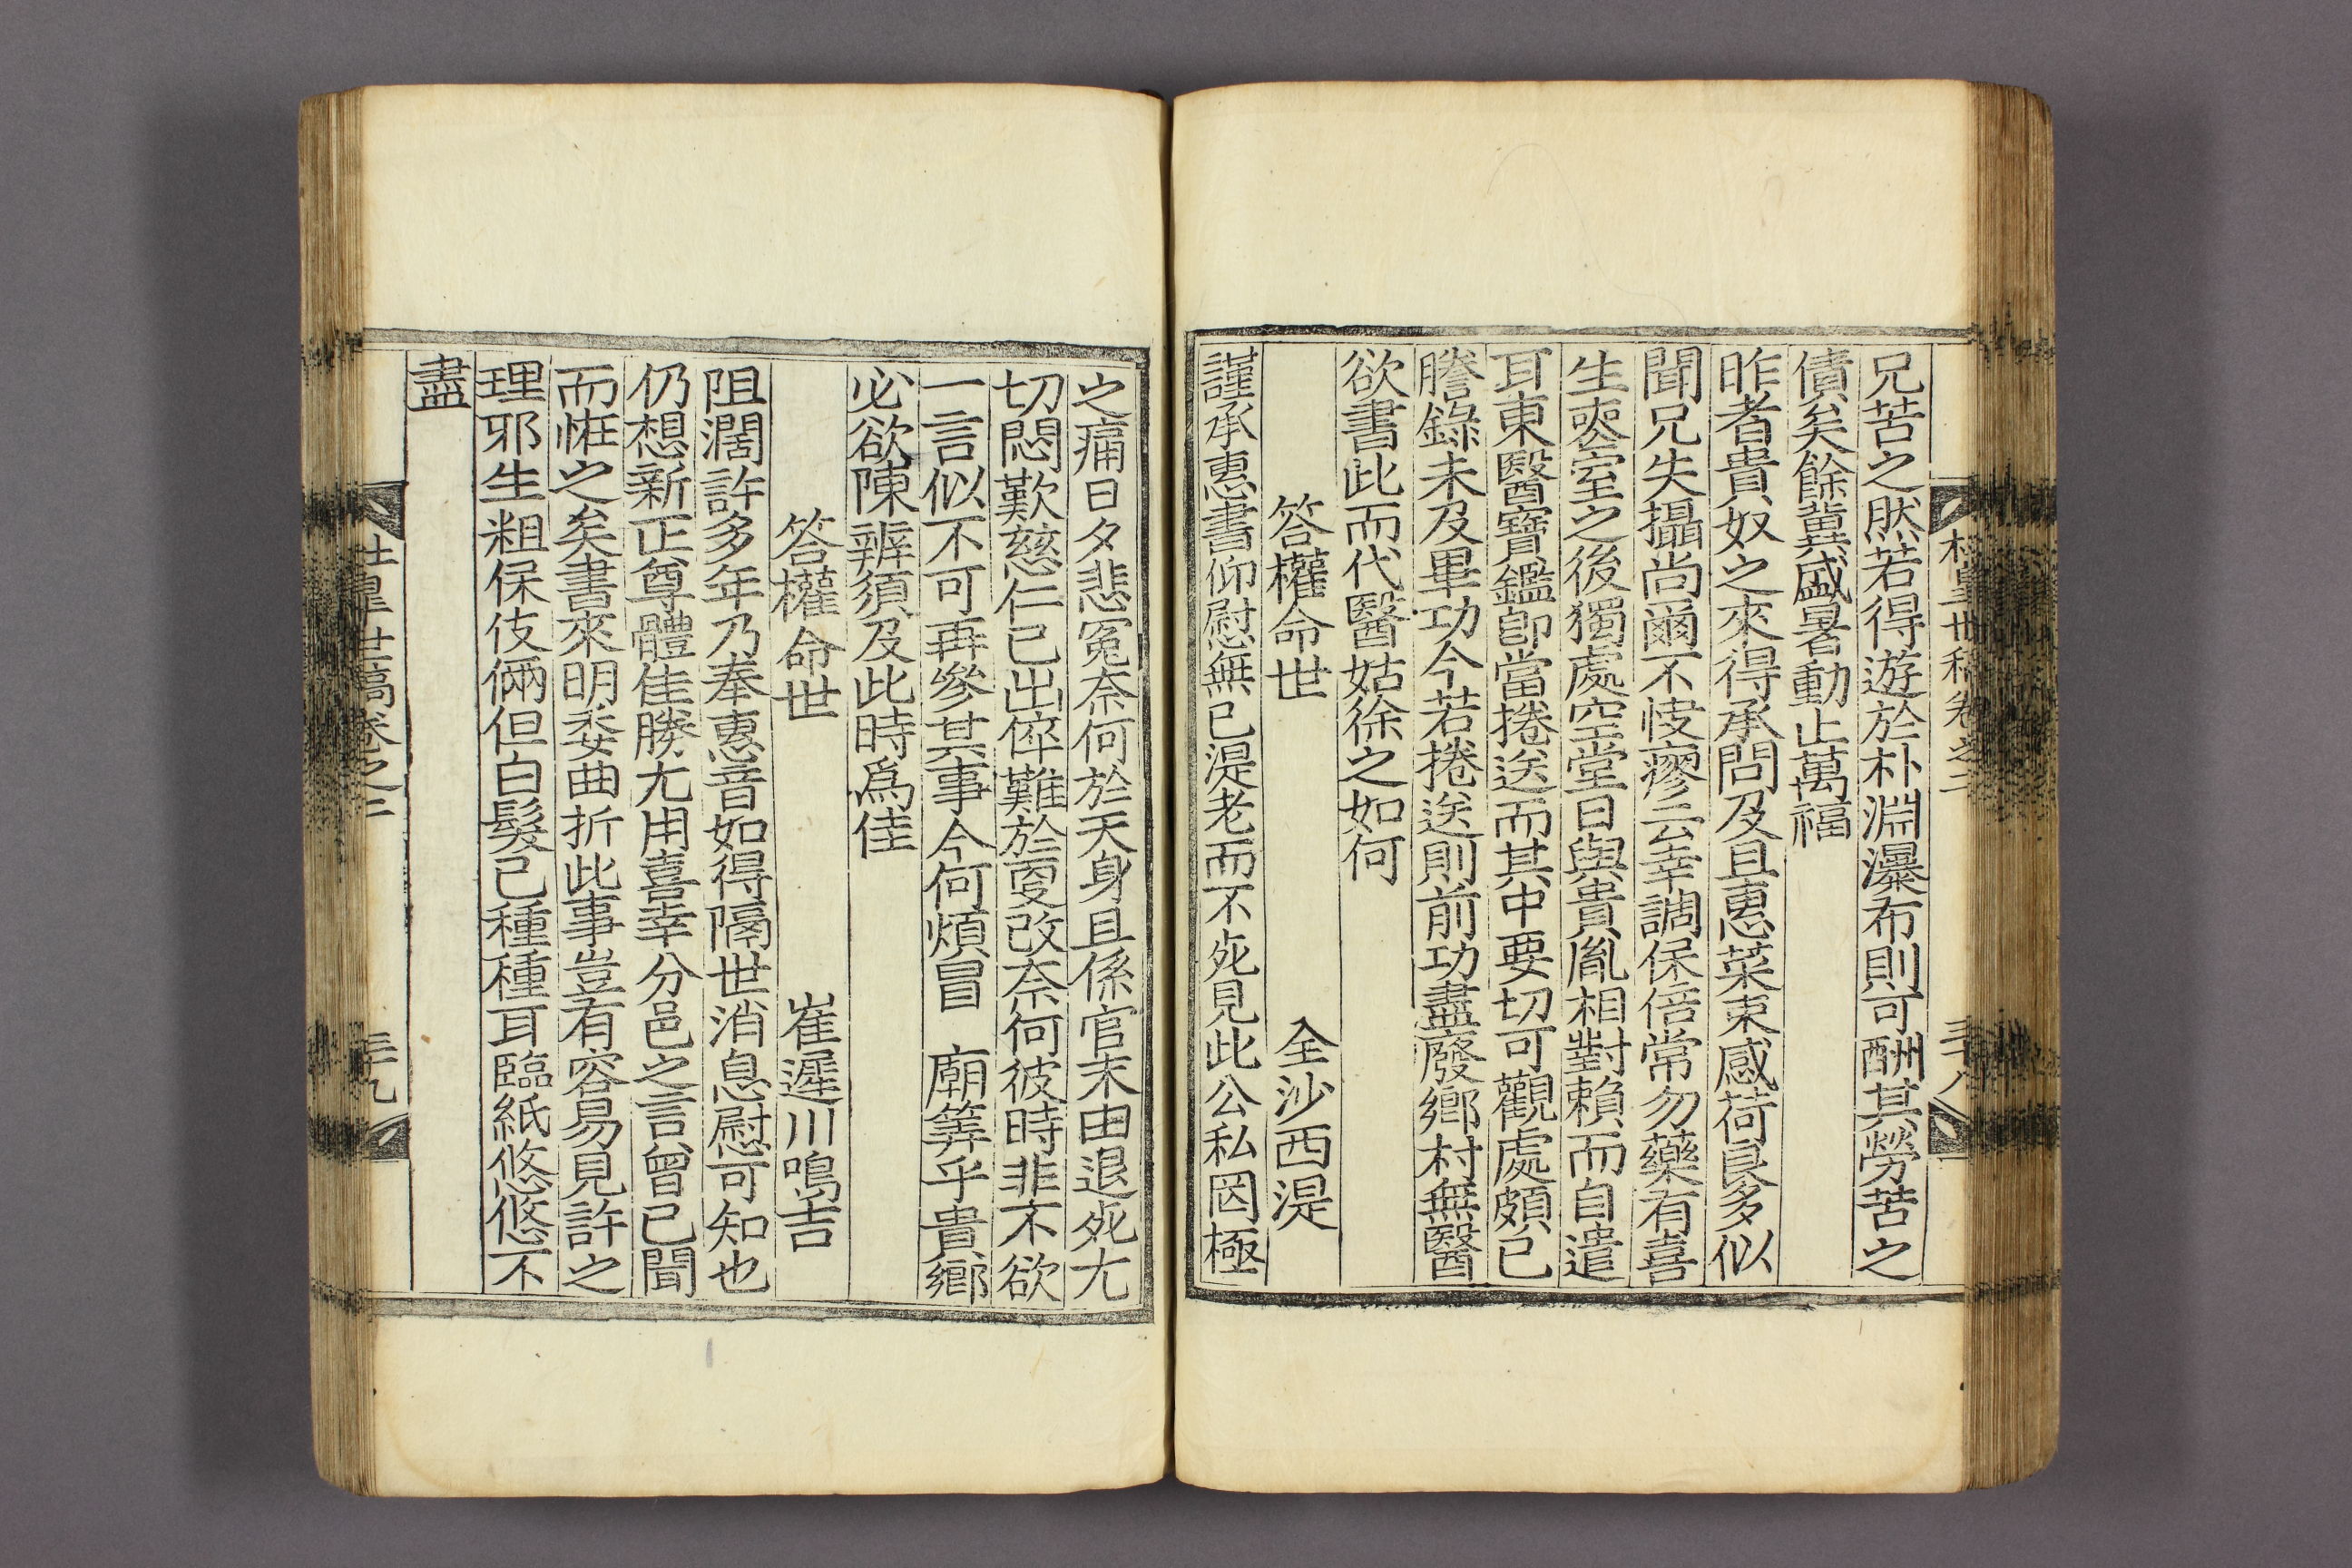 兄苦之然若得遊於朴淵瀑布則可酬其勞苦之
債矣餘冀盛暑動止萬福
昨者貴奴之來得承問及且惠菜束感荷良多似
聞兄失攝尚爾不快瘳云幸調保倍常勿藥有喜
生喪室之後獨處空堂日與貴胤相對賴而自遣
耳東醫寶鑑卽當捲送而其中要切可觀處頗已
謄錄未及畢功今若捲送則前功盡廢鄉村無醫
欲書此而代醫姑徐之如何
答權命世 全沙西湜
謹承惠書仰慰無已湜老而不死見此公私罔極
之痛日夕悲冤奈何於天身且係官末由退死尤
切悶歎慈仁已出倅難於更改奈何彼時非不欲
一言似不可再參其事今何煩冒 廟筭乎貴鄉
必欲陳辨須及此時爲佳
答權命世 崔遲川鳴吉
阻濶許多年乃奉惠音如得隔世消息慰可知也
仍想新正尊體佳勝尤用喜幸分邑之言曾已聞
而恠之矣書來明委曲折此事豈有容易見許之
理邪生粗保伎倆但白髮已種種耳臨紙悠悠不
盡
世稿卷之二 三十九